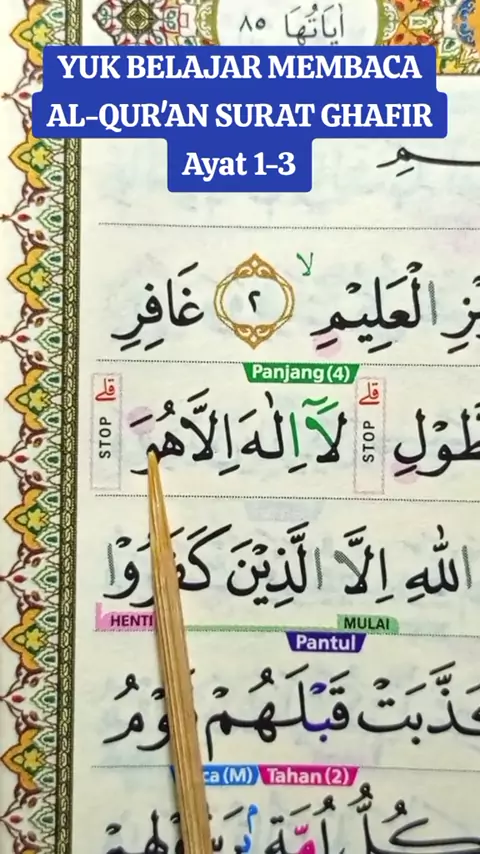 اٰيَاتُهَا ٨٥
YUK BELAJAR MEMBACA
AL-QUR'AN SURAT GHAFIR
Ayat 1-3
الْعَلِيْمِ ۙ ٢ غَافِرِ
Panjang (4)
قلے STOP لَآ اِلٰهَ اِلَّا هُوَ قلے STOP
اللّٰهِ اِلَّا الَّذِيْنَ كَفَرُوْا
HENTI MULAI
Pantul
قَبْلَهُمْ
Tahan (2)
كُلُّ اُمَّةٍ